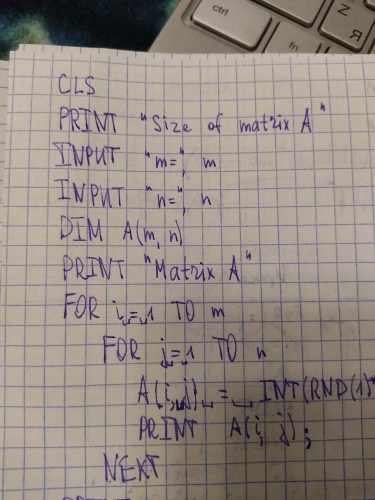 ctrl
Z
Я
fn
CLS
PRINT "Size of matrix A"
INPUT "m=", m
INPUT "n=", n
DIM A(m, n)
PRINT "Matrix A"
FOR i=1 TO m
FOR j=1 TO n
A(i,j) = INT(RND(1)*
PRINT A(i, j);
NEXT